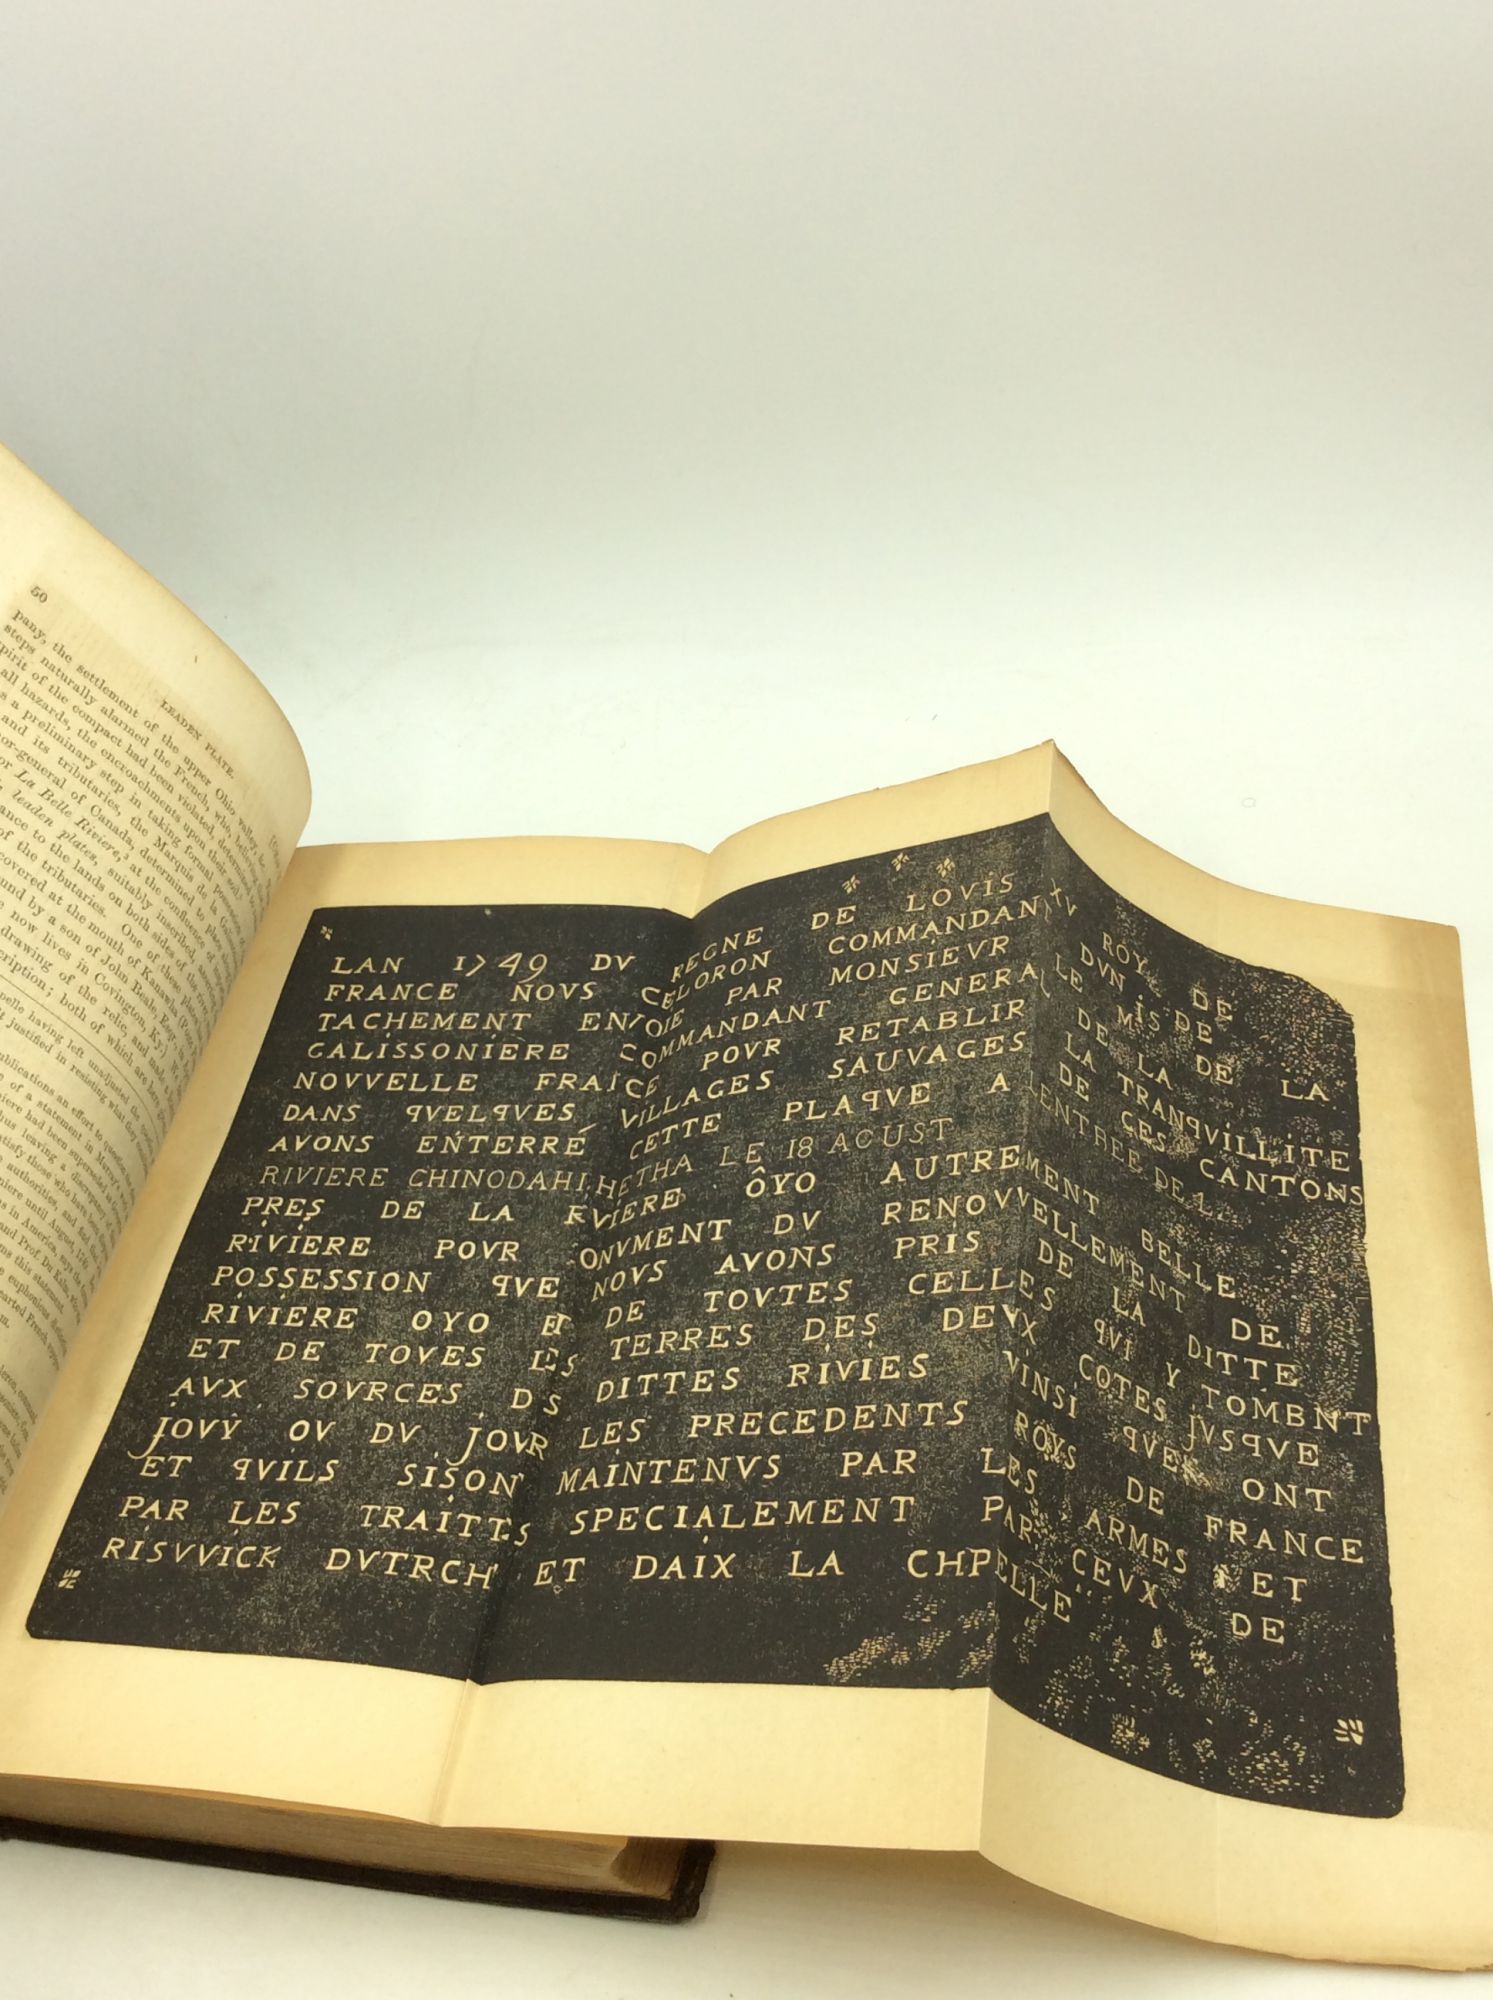 50
LEADEN PLATE.
pany, the settlement of the upper Ohio valley,
steps naturally alarmed the French, who,
spirit of the compact had been violated, determined
all hazards, the encroachments upon their soil.
a preliminary step in taking formal
and its tributaries, the Marquis de la
or-general of Canada, determined to place
or La Belle Riviere, at the confluence
leaden plates, suitably inscribed,
ance to the lands on both sides of the
of the tributaries. One of these plates
covered at the mouth of Kanawha
und by a son of John Beale, Esqr.,
now lives in Covington, Ky.)
drawing of the relic, and
cription; both of which are
LAN 1749 DV REGNE DE LOVIS XV ROY DE
FRANCE NOVS CELORON COMMANDANT DVN DE
TACHEMENT ENVOIE PAR MONSIEVR LE MIS DE LA
GALISSONIERE COMMANDANT GENERAL DE LA
NOVVELLE FRANCE POVR RETABLIR LA TRANQVILLITE
DANS QVELQVES VILLAGES SAUVAGES DE CES CANTONS
AVONS ENTERRÉ CETTE PLAQVE A LENTREE DE LA
RIVIERE CHINODAHICHETHA LE 18 AOUST
PRES DE LA RIVIERE ÔYO AUTREMENT BELLE
RIVIERE POVR MONVMENT DV RENOVVELLEMENT DE
POSSESSION QVE NOVS AVONS PRIS DE LA DITTE
RIVIERE OYO ET DE TOVTES CELLES QVI Y TOMBNT
ET DE TOVES LES TERRES DES DEVX COTES JVSQVE
AVX SOVRCES DS DITTES RIVIES VINSI QVE ONT
JOVY OV DV JOVR LES PRECEDENTS ROYS DE FRANCE
ET QVILS SISONT MAINTENVS PAR LES ARMES ET
PAR LES TRAITTS SPECIALEMENT PAR CEVX DE
RISVVICK DVTRCHT ET DAIX LA CHPELLE